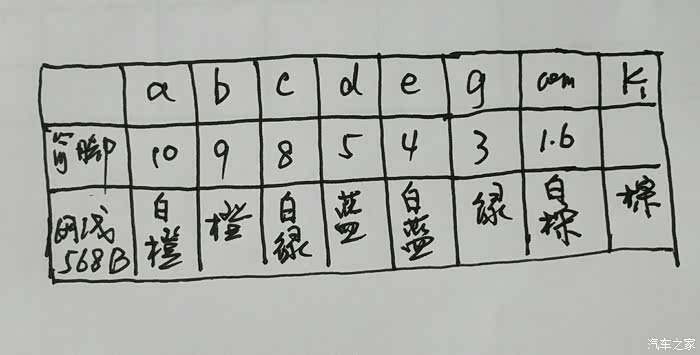 a b c d e g com K1
管脚 10 9 8 5 4 3 1.6
网线568B 白橙 橙 白绿 蓝 白蓝 绿 白棕 棕
汽车之家